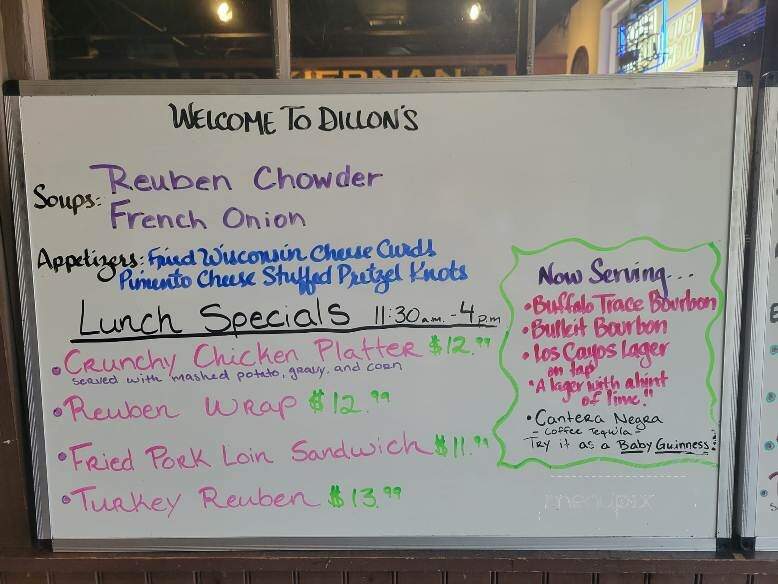 KIERNAN
WELCOME TO DILLON'S
Soups: Reuben Chowder
French Onion
Appetizers: Fried Wisconsin Cheese Curds
Pimento Cheese Stuffed Pretzel Knots
Lunch Specials 11:30 a.m. - 4 p.m
• Crunchy Chicken Platter $12.99
served with mashed potato, gravy, and corn
• Reuben Wrap $12.99
• Fried Pork Loin Sandwich $11.99
• Turkey Reuben $13.99
Now Serving...
• Buffalo Trace Bourbon
• Bulleit Bourbon
• Los Cayos Lager
on tap
"A lager with a hint
of lime!"
• Cantera Negra
- Coffee Tequila -
Try it as a Baby Guinness!
menupix